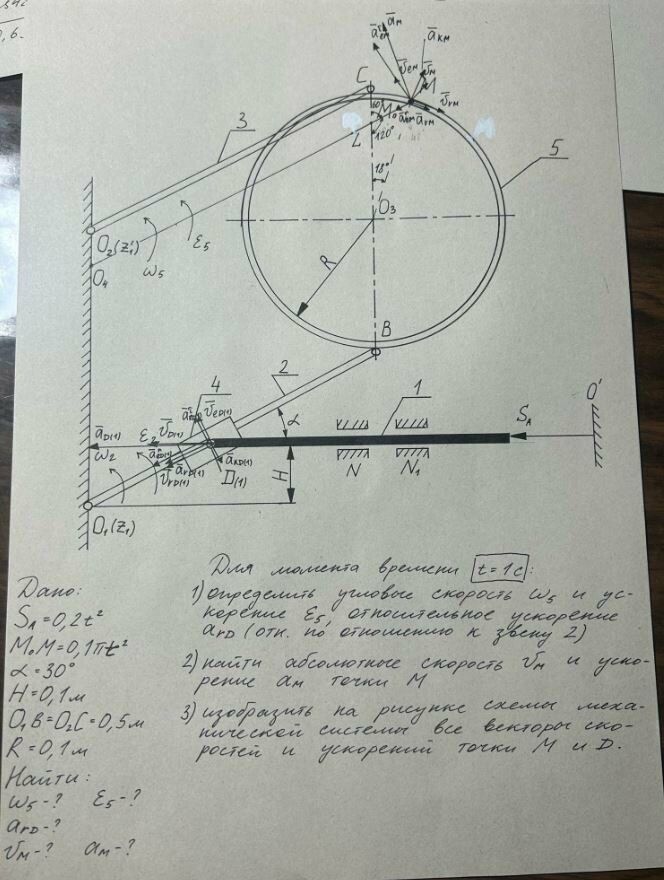 C
3
L
60°
M₀
120°
18°
O₃
5
R
O₂(z₁')
O₄
ω₅
ε₅
B
2
4
1
α
S₁
O'
N
N₁
H
D(1)
ε₂
ω₂
O₁(z₁)
Для момента времени t = 1c:
1) определить угловые скорость ω₅ и ус-
корение ε₅, относительное ускорение
a_rD (отн. по отношению к звену 2)
2) найти абсолютные скорость v̄_M и уско-
рение a_M точки M
3) изобразить на рисунке схемы меха-
нической системы все векторы ско-
ростей и ускорений точки M и D.
Дано:
S₁ = 0,2t²
M₀M = 0,1πt²
α = 30°
H = 0,1м
O₁B = O₂C = 0,5м
R = 0,1м
Найти:
ω₅ - ? ε₅ - ?
a_rD - ?
v_M - ? a_M - ?